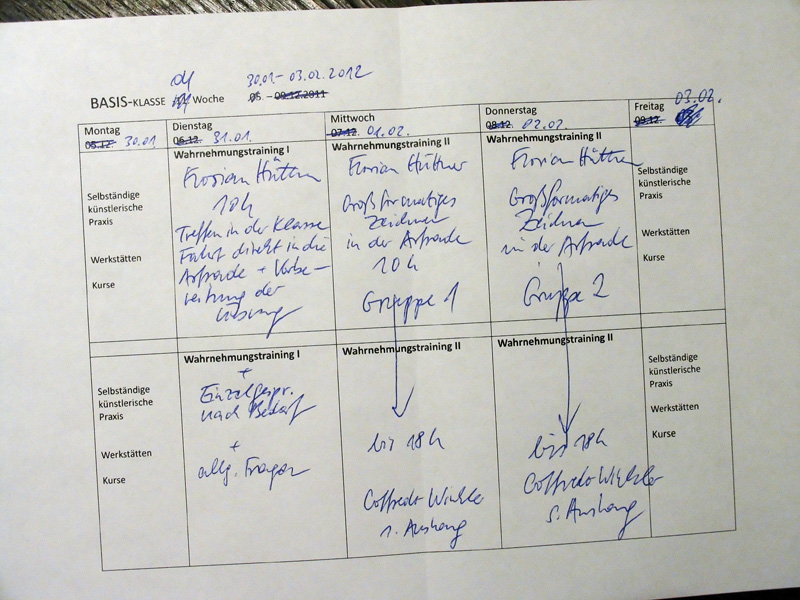 30.01. - 03.02.2012
BASIS-KLASSE Woche 05. - 09.12.2011
Montag
05.12. 30.01
Dienstag
06.12. 31.01.
Mittwoch
07.12. 01.02.
Donnerstag
08.12. 02.02.
Freitag 03.02.
09.12.
Selbständige
künstlerische
Praxis
Werkstätten
Kurse
Wahrnehmungstraining I
Florian Hüttner
10h
Treffen in der Klasse
Fahrt direkt in die
+ Vorbe-
reitung der
Wahrnehmungstraining II
Florian Hüttner
Großformatiges
Zeichnen
in der
10h
Gruppe 1
Wahrnehmungstraining II
Florian Hüttner
Großformatiges
Zeichnen
in der
Gruppe 2
Selbständige
künstlerische
Praxis
Werkstätten
Kurse
Selbständige
künstlerische
Praxis
Werkstätten
Kurse
Wahrnehmungstraining I
+
Einzelgespr.
nach Bedarf
+
allg. Fragen
Wahrnehmungstraining II
bis 18h
s. Aushang
Wahrnehmungstraining II
bis 18h
s. Aushang
Selbständige
künstlerische
Praxis
Werkstätten
Kurse